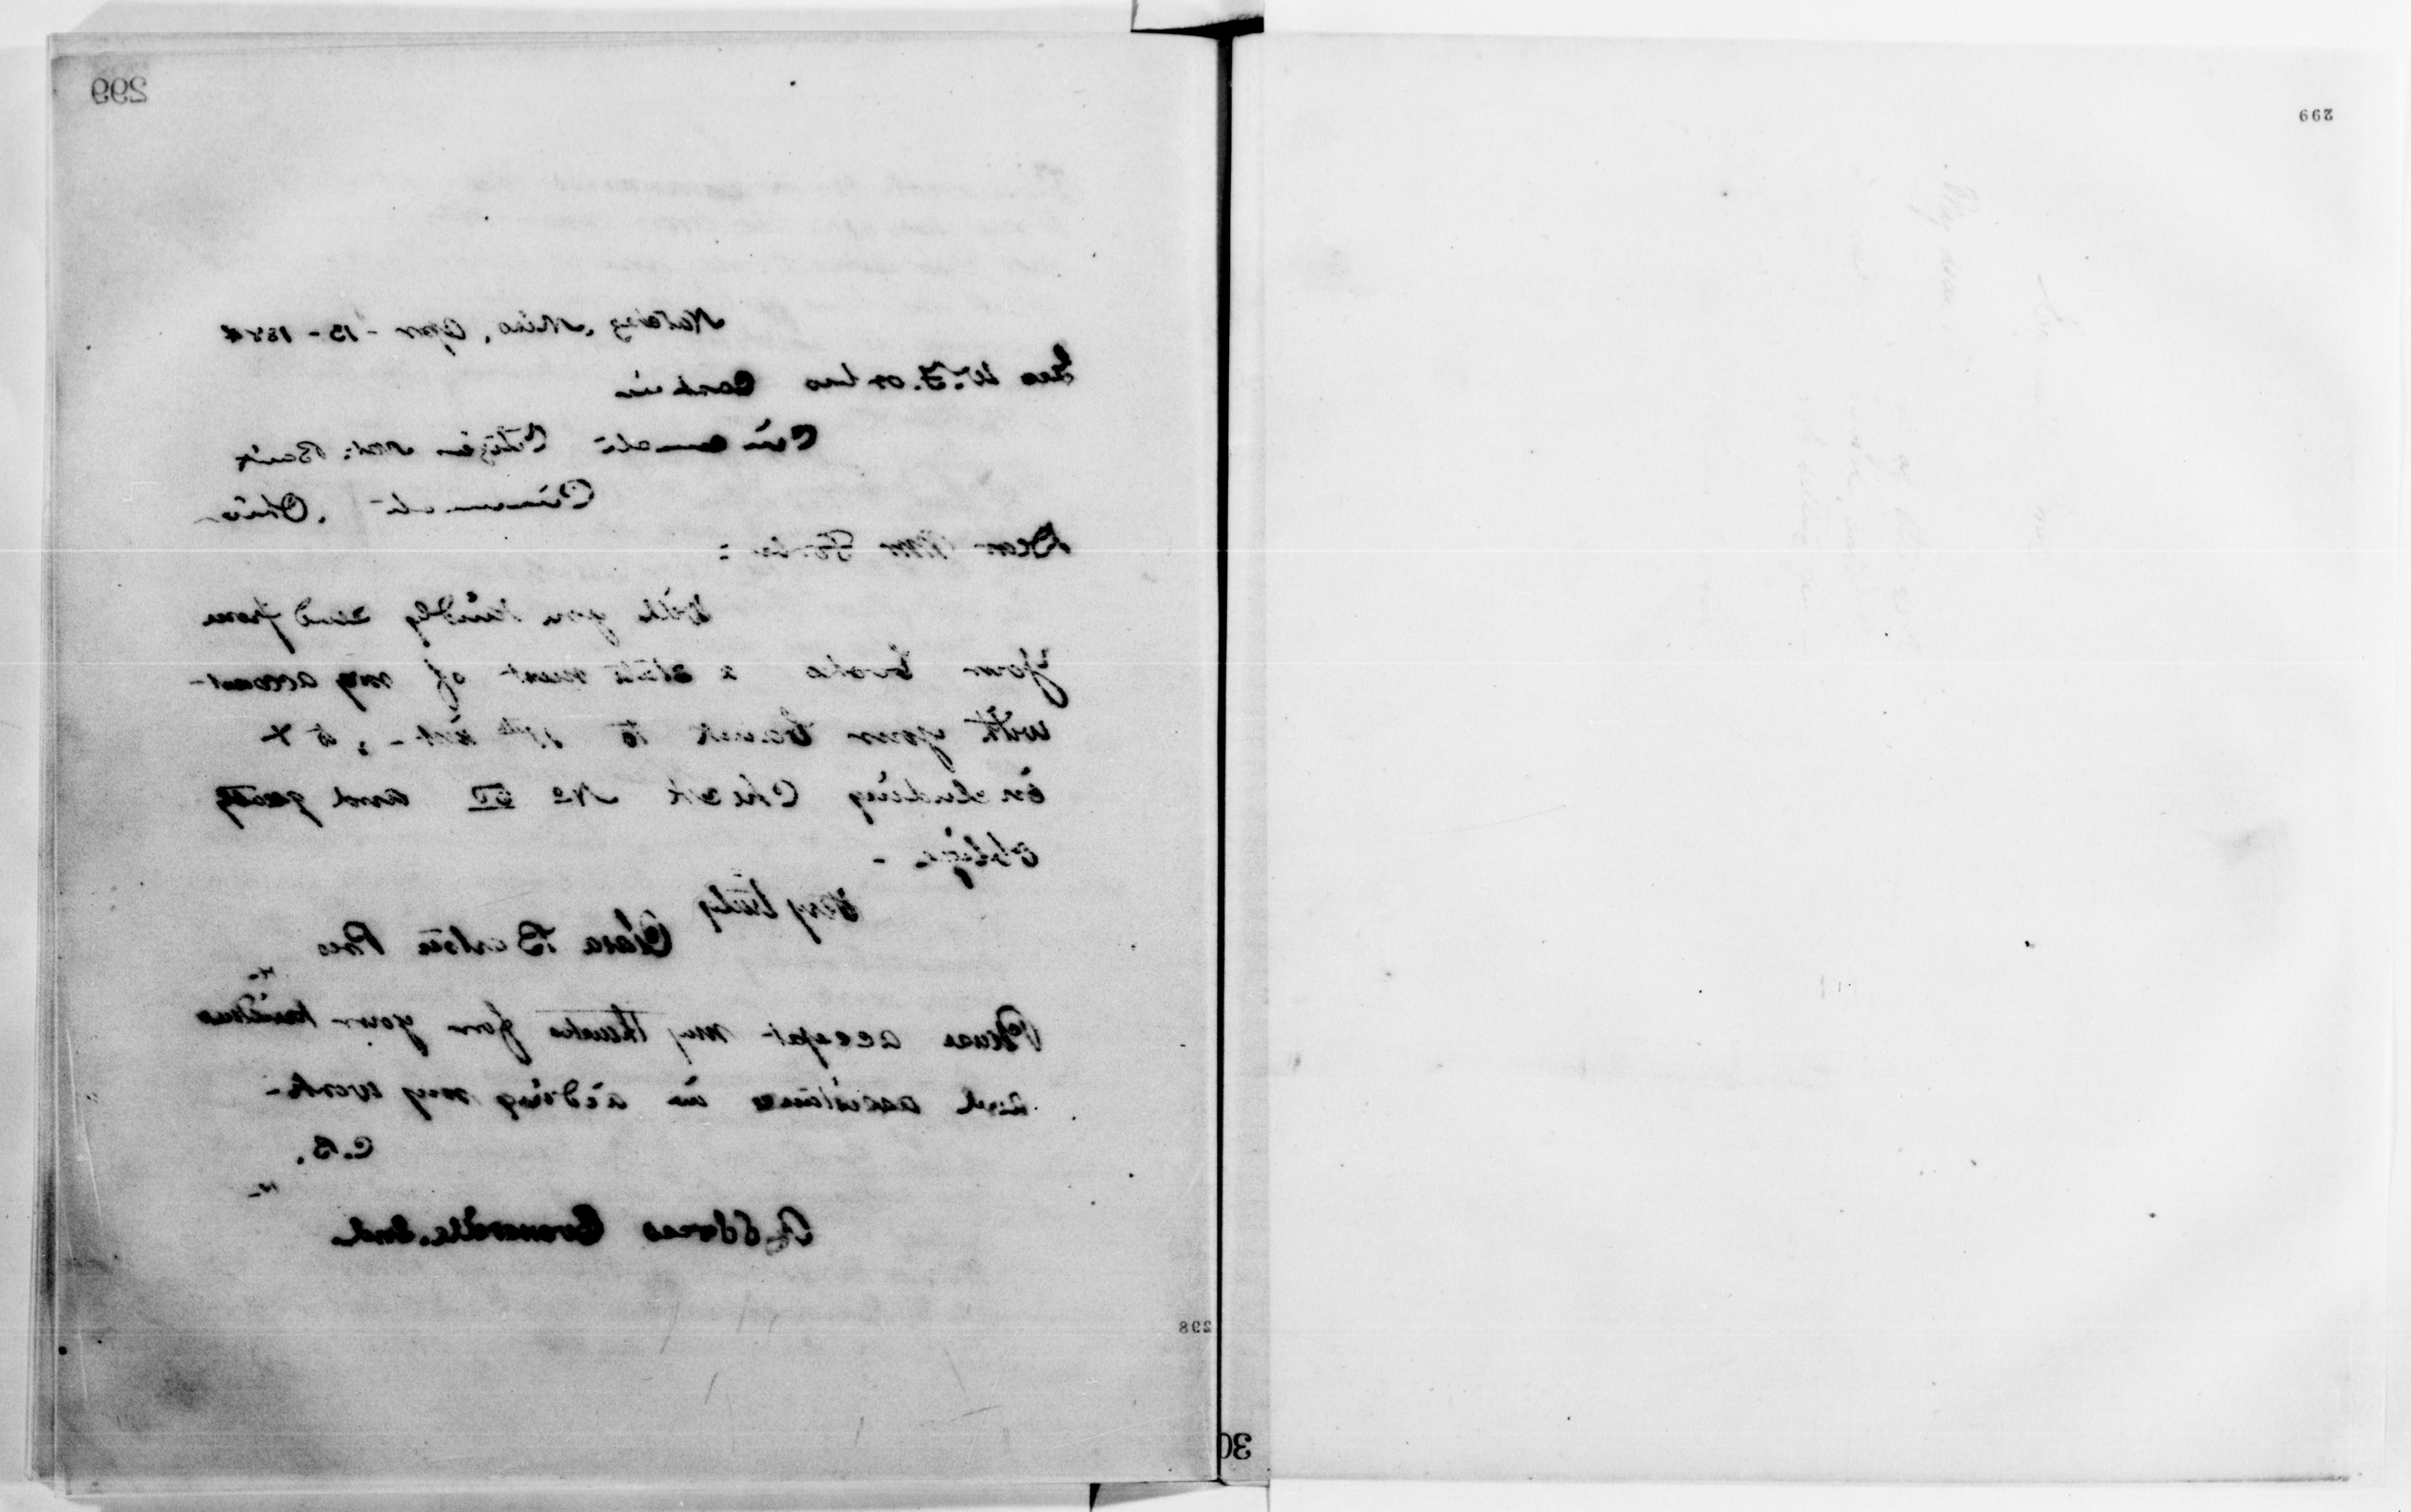 299
Natchez, Miss, Apr - 15 - 1884
Geo W. Forbes Cashier
Cincinnati Citizen Nat. Bank
Cincinnati, Ohio
Dear Mr Forbes:
Will you kindly send from
your books a statement of my account
with your bank to inst -
including Check No and greatly
oblige -
Very truly
Clara Barton Pres
Please accept my thanks for your kindness
and assistance in aiding my work -
C.B.
Address Evansville. Ind.
298
299
30